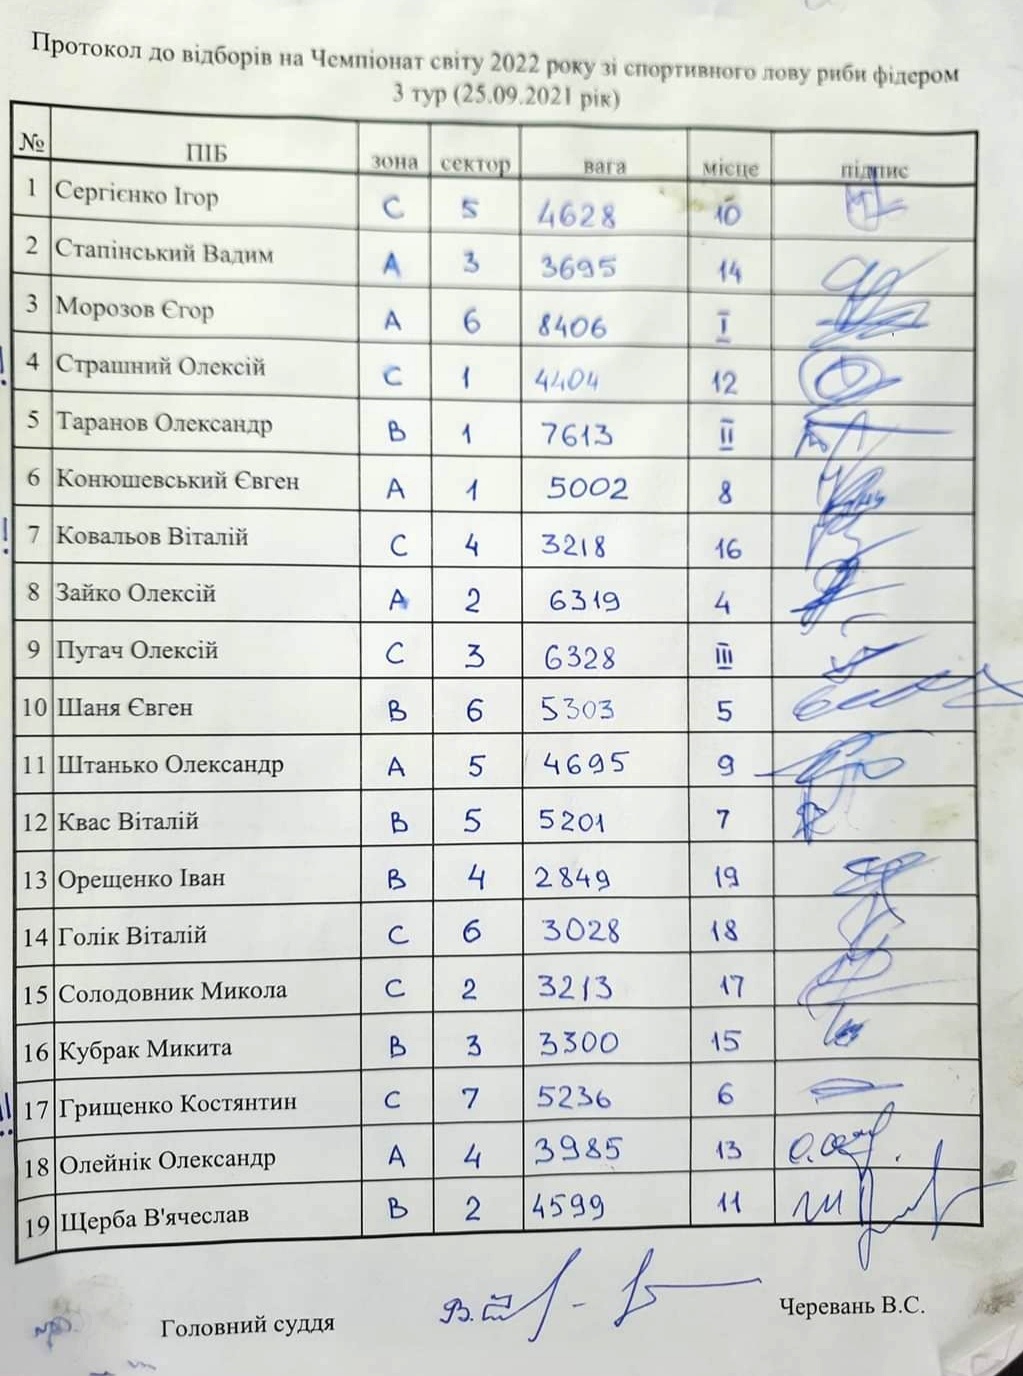 Протокол до відборів на Чемпіонат світу 2022 року зі спортивного лову риби фідером
3 тур (25.09.2021 рік)
№ ПІБ зона сектор вага місце підпис
1 Сергієнко Ігор С 5 4628 10
2 Стапінський Вадим А 3 3695 14
3 Морозов Єгор А 6 8406 I
4 Страшний Олексій С 1 4404 12
5 Таранов Олександр В 1 7613 II
6 Конюшевський Євген А 1 5002 8
7 Ковальов Віталій С 4 3218 16
8 Зайко Олексій А 2 6319 4
9 Пугач Олексій С 3 6328 III
10 Шаня Євген В 6 5303 5
11 Штанько Олександр А 5 4695 9
12 Квас Віталій В 5 5201 7
13 Орещенко Іван В 4 2849 19
14 Голік Віталій С 6 3028 18
15 Солодовник Микола С 2 3213 17
16 Кубрак Микита В 3 3300 15
17 Грищенко Костянтин С 7 5236 6
18 Олейнік Олександр А 4 3985 13
19 Щерба В'ячеслав В 2 4599 11
Головний суддя Черевань В.С.